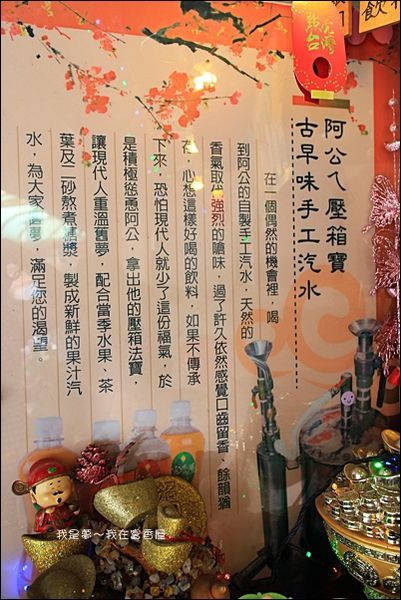 阿公ㄟ壓箱寶
古早味手工汽水
在一個偶然的機會裡，喝
到阿公的自製手工汽水，天然的
香氣取代強烈的嗆味，過了許久依然感覺口齒留香，餘韻猶
在，心想這樣好喝的飲料，如果不傳承
下來，恐怕現代人就少了這份福氣，於
是積極慫恿阿公，拿出他的壓箱法寶，
讓現代人重溫舊夢，配合當季水果、茶
葉及二砂熬煮糖漿，製成新鮮的果汁汽
水，為大家圓夢，滿足您的渴望。
我是夢～我在當香屋